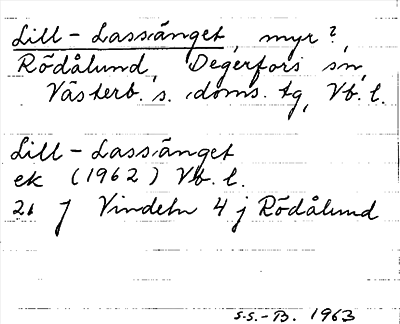 Lill-Lassänget, myr?,
Rödålund, Degerfors sn,
Västerb. s. doms. tg, Vb. l.
Lill-Lassänget
ek (1962) Vb. l.
21 J Vindeln 4 j Rödålund
S.S.-B. 1963